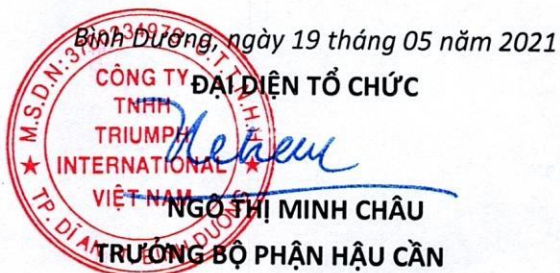 Bình Dương, ngày 19 tháng 05 năm 2021
ĐẠI DIỆN TỔ CHỨC
CÔNG TY
TNHH
TRIUMPH
INTERNATIONAL
VIỆT NAM
NGÔ THỊ MINH CHÂU
TRƯỞNG BỘ PHẬN HẬU CẦN